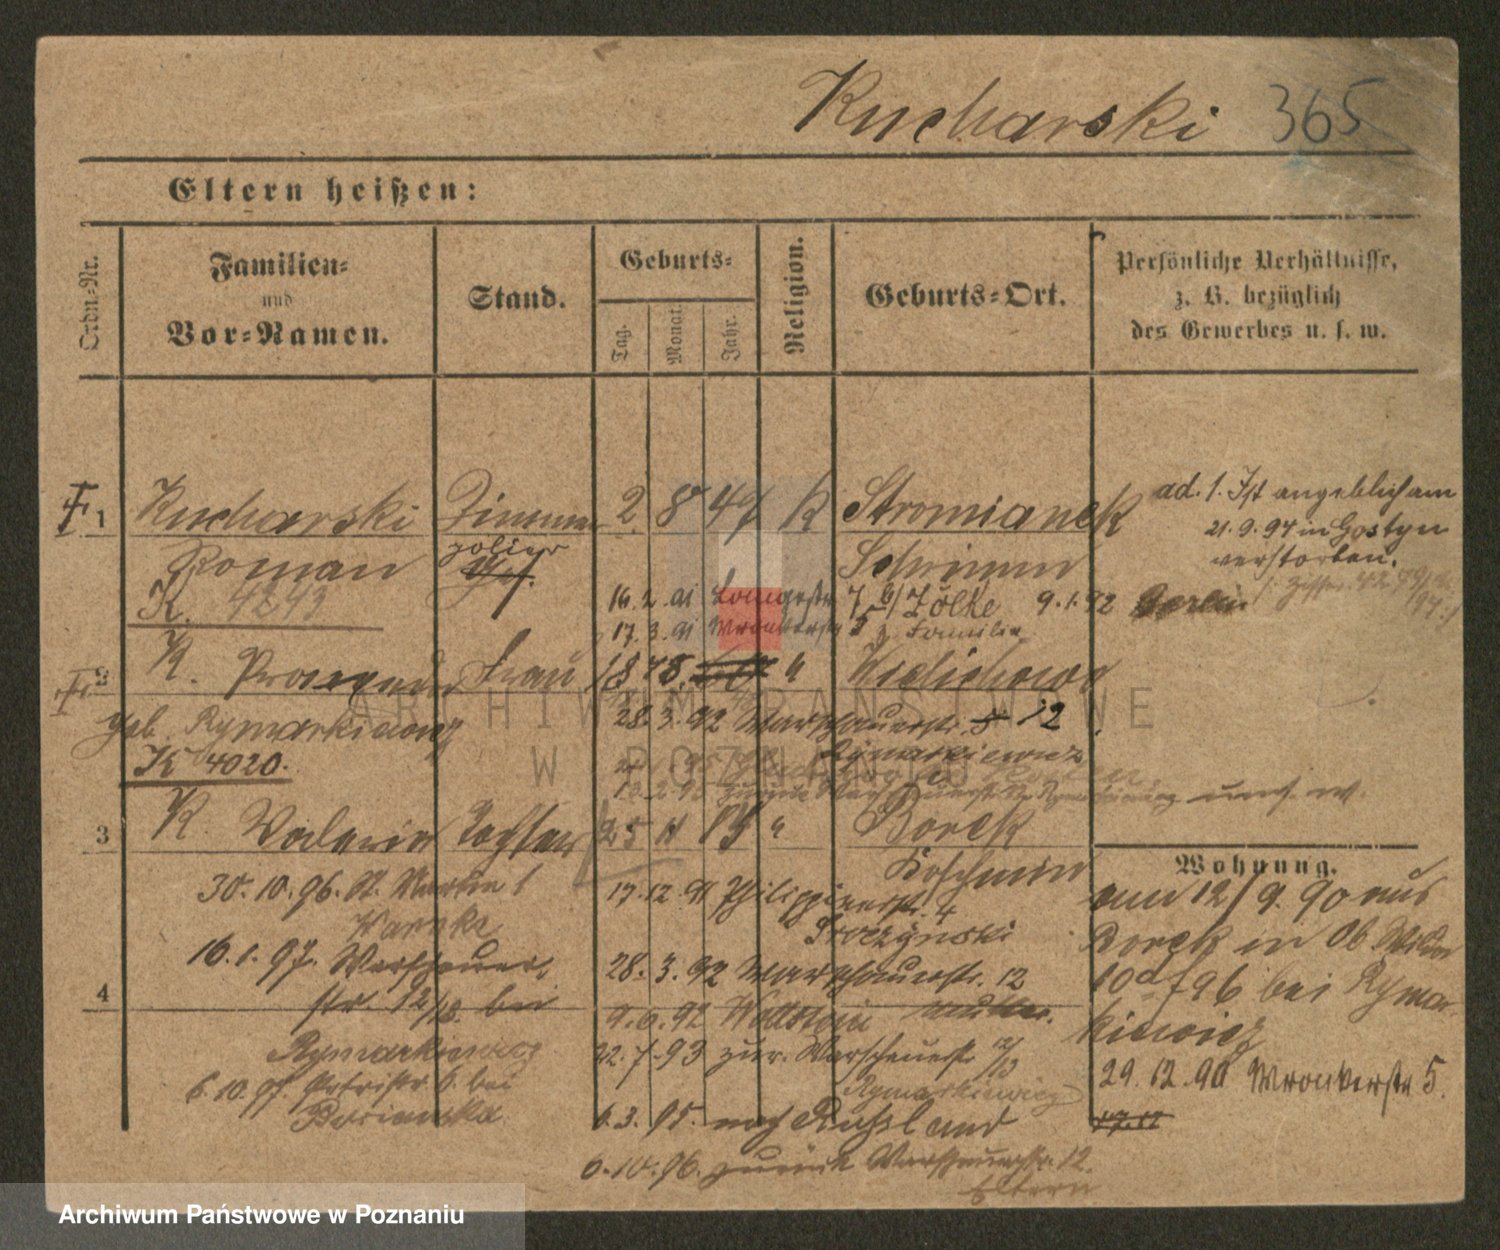 Kucharski 365
Eltern heißen:
Ordn.-Nr.
Familien-
und
Vor-Namen.
Stand.
Geburts-
Tag.
Monat.
Jahr.
Religion.
Geburts-Ort.
Persönliche Verhältnisse,
z. B. bezüglich
des Gewerbes u. s. w.
1 Kucharski 2 8 47 K Stromianek
Roman
polier
Schrimm
K. 4243
ad. 1. Ist angeblich am
21.9.94 in Gostyn
verstorben.
16.2.91 Langestr. 7 b/ Zölke 9.1.92 Berlin
17.3.91 Wronkerstr 5 z. Familie
2 K. Frau 18 " Wielichowo
geb. Rymarkiewicz
K 4020.
28.3.92 Warschauerstr. 12
Rymarkiewicz
3 K. Valeria Tochter 25 " Borek
Koschmin
30.10.96. St. Martin 1
17.12.91 Philippinenstr. 4
Sroczynski
16.1.97. Warschauer
str. 12/13. bei
Rymarkiewicz
28.3.92 Warschauerstr. 12
4
9.6.92 Wollstein
22.7.93 zur. Warschauerstr 12/13
Rymarkiewicz
6.10.97. Petristr. 6. bei
6.3.95. nach Russland
6.10.96. zurück Warschauerstr. 12.
Eltern
Wohnung.
am 12/9. 90 aus
Borek in Ob Wilda
10a f 96 bei Rymar-
kiewicz
29.12.90 Wronkerstr 5.
17.12
ARCHIWUM PAŃSTWOWE
W POZNANIU
Archiwum Państwowe w Poznaniu